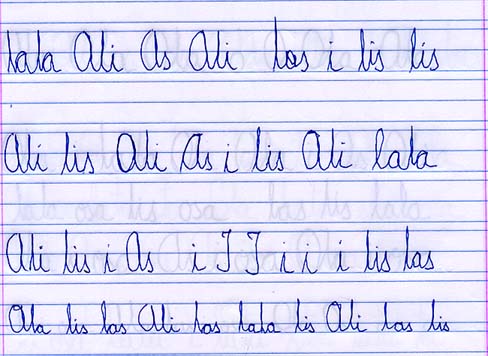 lala Ali As Ali las i lis lis
Ali lis Ali As i lis Ali lala
Ali lis i As i I I i i i lis las
Ala lis las Ali las lala lis Ali las lis